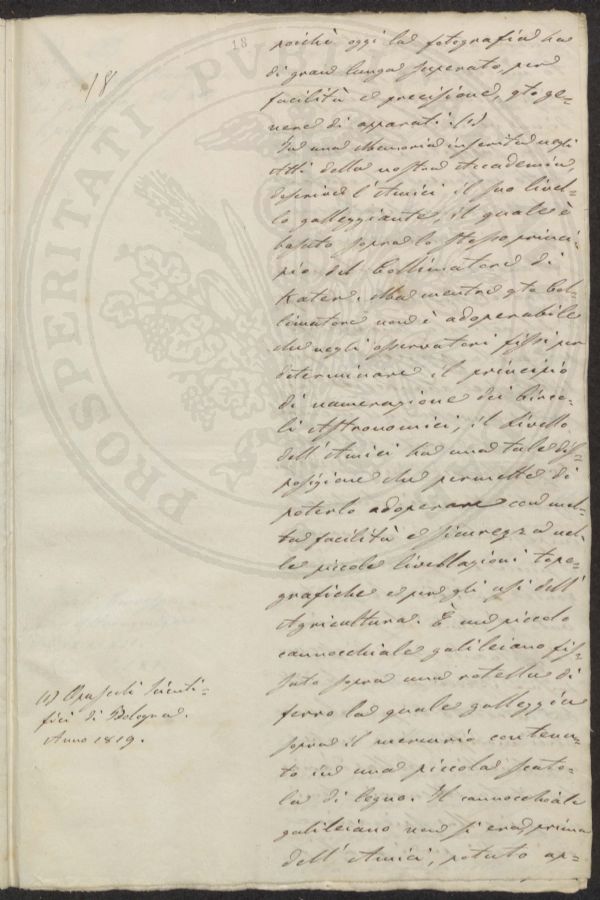 18
18
poichè oggi la fotografia ha
di gran lunga superato, per
facilità e precisione, qto ge-
nere di apparati. (1)
In una Memoria inserita negli
Atti della nostra Accademia,
descrive l'Amici il suo livel-
lo galleggiante, il quale è
basato sopra lo stesso princi-
pio del Collimatore di
Kater. Ma mentre qto Col-
limatore non è adoperabile
che negli osservatori fissi per
determinare il principio
di numerazione dei Circo-
li Astronomici, il livello
dell'Amici ha una tale dis-
posizione che permette di
poterlo adoperare con mol-
ta facilità e sicurezza nel-
le piccole livellazioni topo-
grafiche e per gli usi dell'
Agricultura. È un piccolo
cannocchiale galileiano fis-
sato sopra una rotella di
ferro la quale galleggia
sopra il mercurio contenu-
to in una piccola scato-
la di legno. Il cannocchiale
galileiano non si era, prima
dell'Amici, potuto ap-
(1) Opuscoli Scienti-
fici di Bologna.
Anno 1819.
PROSPERITATI PUBL